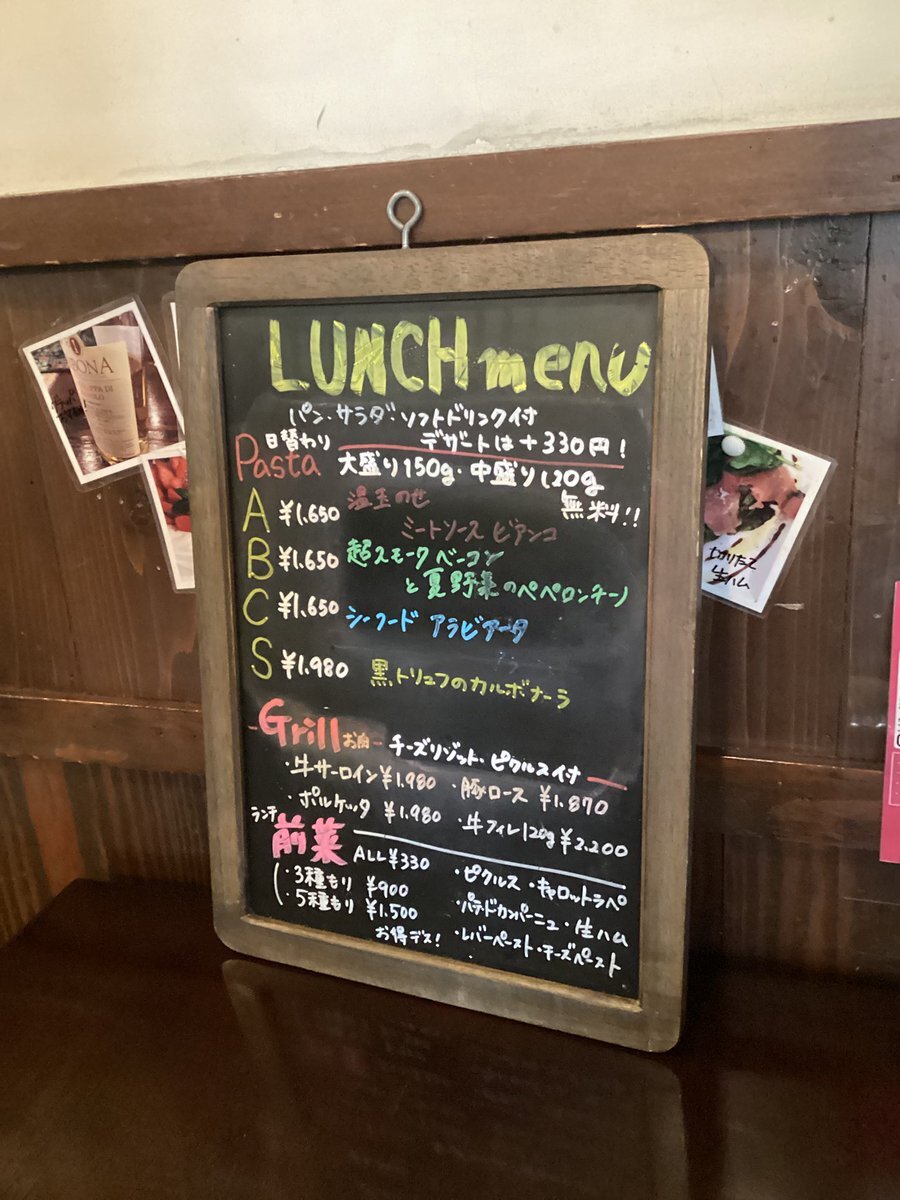 LUNCH menu
パン・サラダ・ソフトドリンク付
日替わり デザートは+330円!
Pasta 大盛り150g・中盛り120g
無料!!
A ¥1.650 温玉のせ
ミートソース ビアンコ
B ¥1.650 超スモークベーコン
と夏野菜のペペロンチーノ
C ¥1.650 シーフード アラビアータ
S ¥1.980 黒トリュフのカルボナーラ
-Grill お肉- チーズリゾット・ピクルス付
・牛サーロイン ¥1.980 ・豚ロース ¥1.870
・ポルケッタ ¥1.980 ・牛フィレ120g ¥2.200
ランチ
前菜 ALL ¥330
・3種もり ¥900
・5種もり ¥1.500
お得デス!
・ピクルス ・キャロットラペ
・パテドカンパーニュ ・生ハム
・レバーペースト ・チーズペースト
BONA
切りたて
生ハム